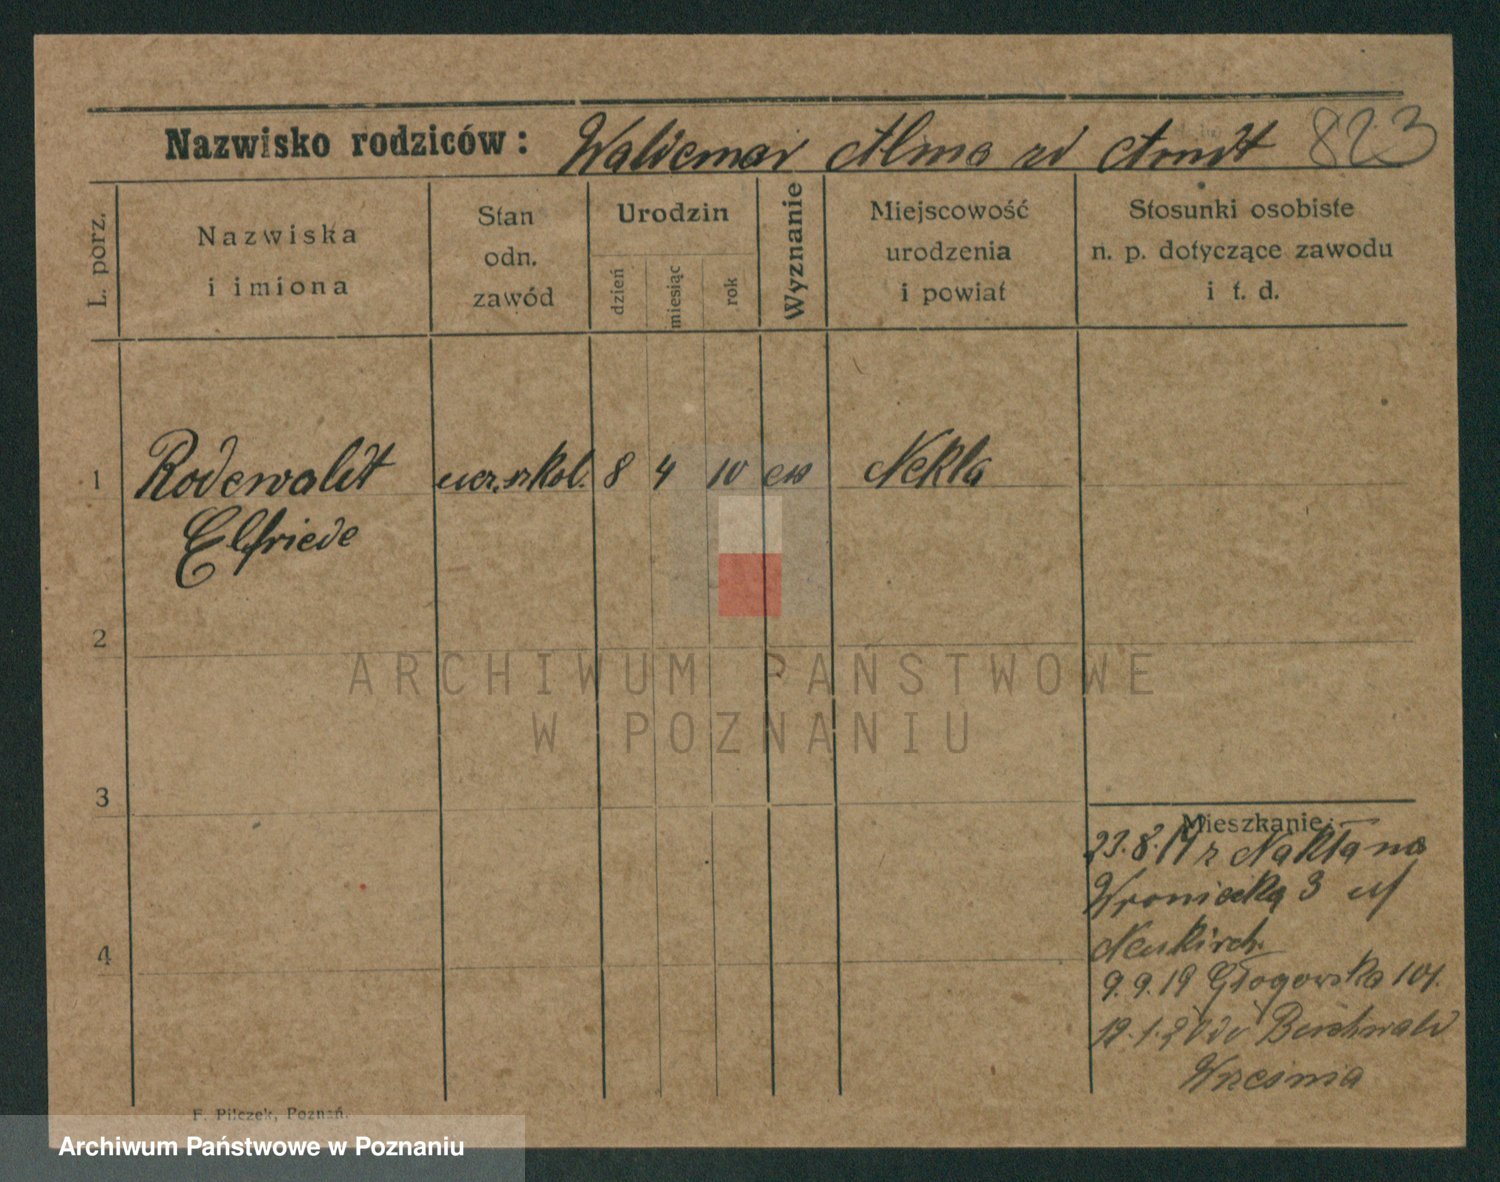 Nazwisko rodziców: Waldemar Alma zd Arndt 823
L. porz.
Nazwiska
i imiona
Stan
odn.
zawód
Urodzin
dzień
miesiąc
rok
Wyznanie
Miejscowość
urodzenia
i powiat
Stosunki osobiste
n. p. dotyczące zawodu
i t. d.
1 Rodewaldt ucz. szkol. 8 4 10 ew Nekla
Elfriede
2
ARCHIWUM PAŃSTWOWE
W POZNANIU
3
Mieszkanie:
23.8.19 z Nakła na
Wroniecką 3 u
Neukirch
4
9.9.19 Głogowska 101.
12.1.20 do
Września
F. Pilczek, Poznań.
Archiwum Państwowe w Poznaniu